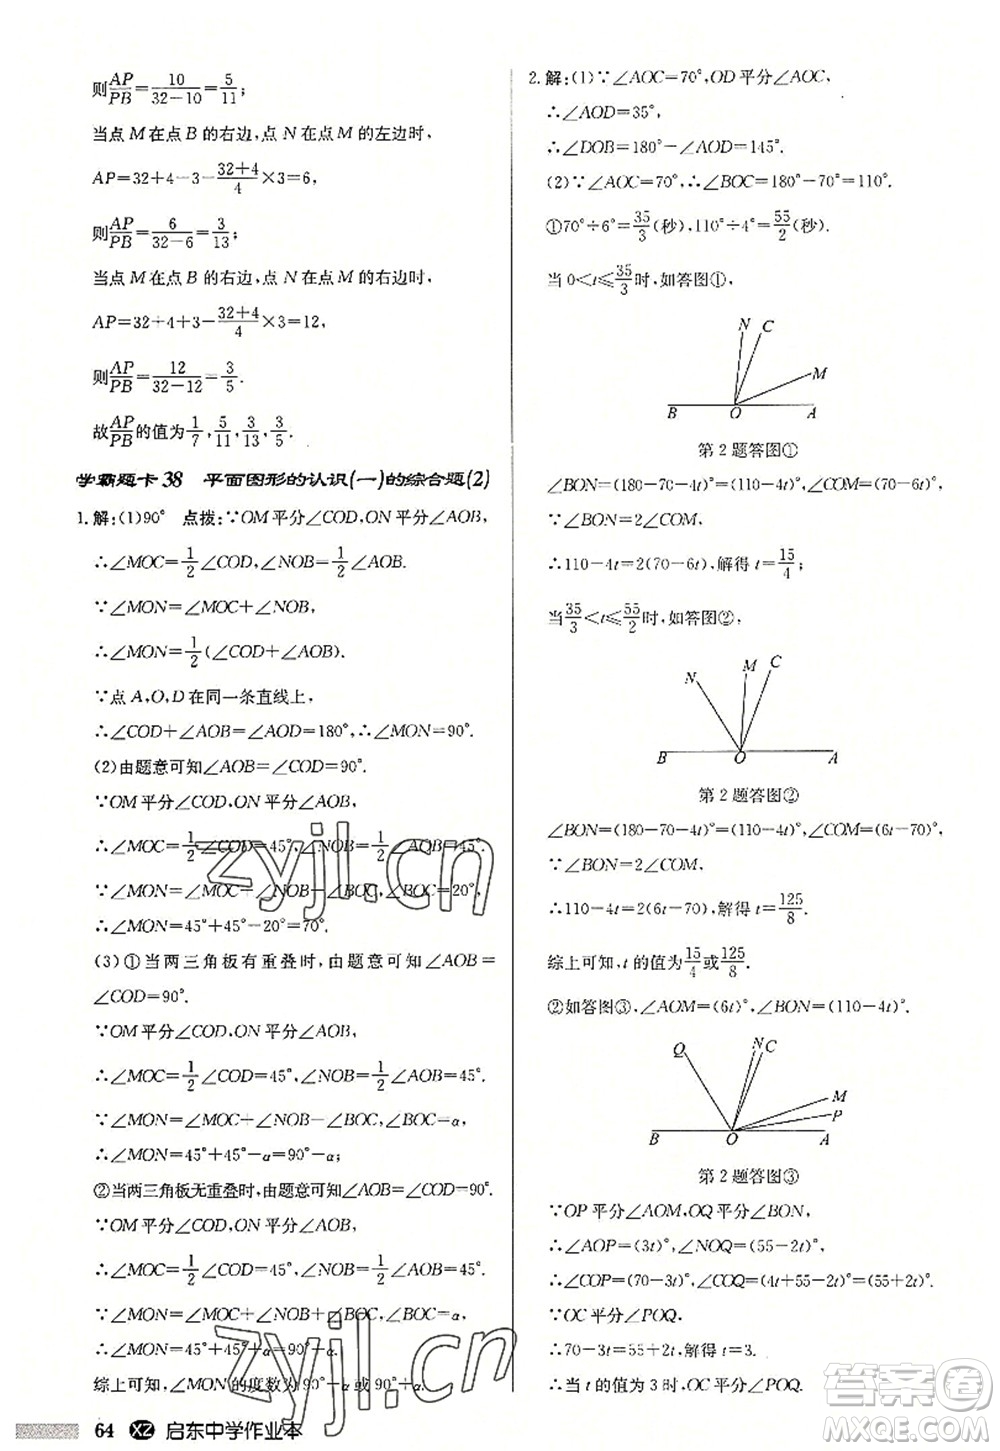 则AP/PB=10/(32-10)=5/11;
当点M在点B的右边,点N在点M的左边时,
AP=32+4-3-(32+4)/4×3=6,
则AP/PB=6/(32-6)=3/13;
当点M在点B的右边,点N在点M的右边时,
AP=32+4+3-(32+4)/4×3=12,
则AP/PB=12/(32-12)=3/5.
故AP/PB的值为1/7,5/11,3/13,3/5.
学霸题卡38 平面图形的认识(一)的综合题(2)
1.解:(1)90° 点拨:∵OM平分∠COD,ON平分∠AOB,
∴∠MOC=1/2∠COD,∠NOB=1/2∠AOB.
∵∠MON=∠MOC+∠NOB,
∴∠MON=1/2(∠COD+∠AOB).
∵点A,O,D在同一条直线上,
∴∠COD+∠AOB=180°,∴∠MON=90°.
(2)由题意可知∠AOB=∠COD=90°.
∵OM平分∠COD,ON平分∠AOB,
∴∠MOC=1/2∠COD=45°,∠NOB=1/2∠AOB=45°.
∵∠MON=∠MOC+∠NOB-∠BOC,∠BOC=20°,
∴∠MON=45°+45°-20°=70°.
(3)①当两三角板有重叠时,由题意可知∠AOB=
∠COD=90°.
∵OM平分∠COD,ON平分∠AOB,
∴∠MOC=1/2∠COD=45°,∠NOB=1/2∠AOB=45°.
∵∠MON=∠MOC+∠NOB-∠BOC,∠BOC=α,
∴∠MON=45°+45°-α=90°-α;
②当两三角板无重叠时,由题意可知∠AOB=∠COD=90°.
∵OM平分∠COD,ON平分∠AOB,
∴∠MOC=1/2∠COD=45°,∠NOB=1/2∠AOB=45°.
∵∠MON=∠MOC+∠NOB+∠BOC,∠BOC=α,
∴∠MON=45°+45°+α=90°+α.
综上可知,∠MON的度数为90°-α或90°+α.
64 XZ 启东中学作业本
2.解:(1)∵∠AOC=70°,OD平分∠AOC,
∴∠AOD=35°,
∴∠DOB=180°-∠AOD=145°.
(2)∵∠AOC=70°,∴∠BOC=180°-70°=110°.
①70°÷6°=35/3(秒),110°÷4°=55/2(秒).
当0<t≤35/3时,如答图①,
N C
M
B O A
第2题答图①
∠BON=(180-70-4t)°=(110-4t)°,∠COM=(70-6t)°,
∵∠BON=2∠COM,
∴110-4t=2(70-6t),解得t=15/4;
当35/3<t≤55/2时,如答图②,
N M C
B O A
第2题答图②
∠BON=(180-70-4t)°=(110-4t)°,∠COM=(6t-70)°,
∵∠BON=2∠COM,
∴110-4t=2(6t-70),解得t=125/8.
综上可知,t的值为15/4或125/8.
②如答图③,∠AOM=(6t)°,∠BON=(110-4t)°.
Q N C
M
P
B O A
第2题答图③
∵OP平分∠AOM,OQ平分∠BON,
∴∠AOP=(3t)°,∠NOQ=(55-2t)°,
∴∠COP=(70-3t)°,∠COQ=(4t+55-2t)°=(55+2t)°.
∵OC平分∠POQ,
∴70-3t=55+2t,解得t=3.
∴当t的值为3时,OC平分∠POQ.
zyjl.cn
答案圈
MXQE.COM